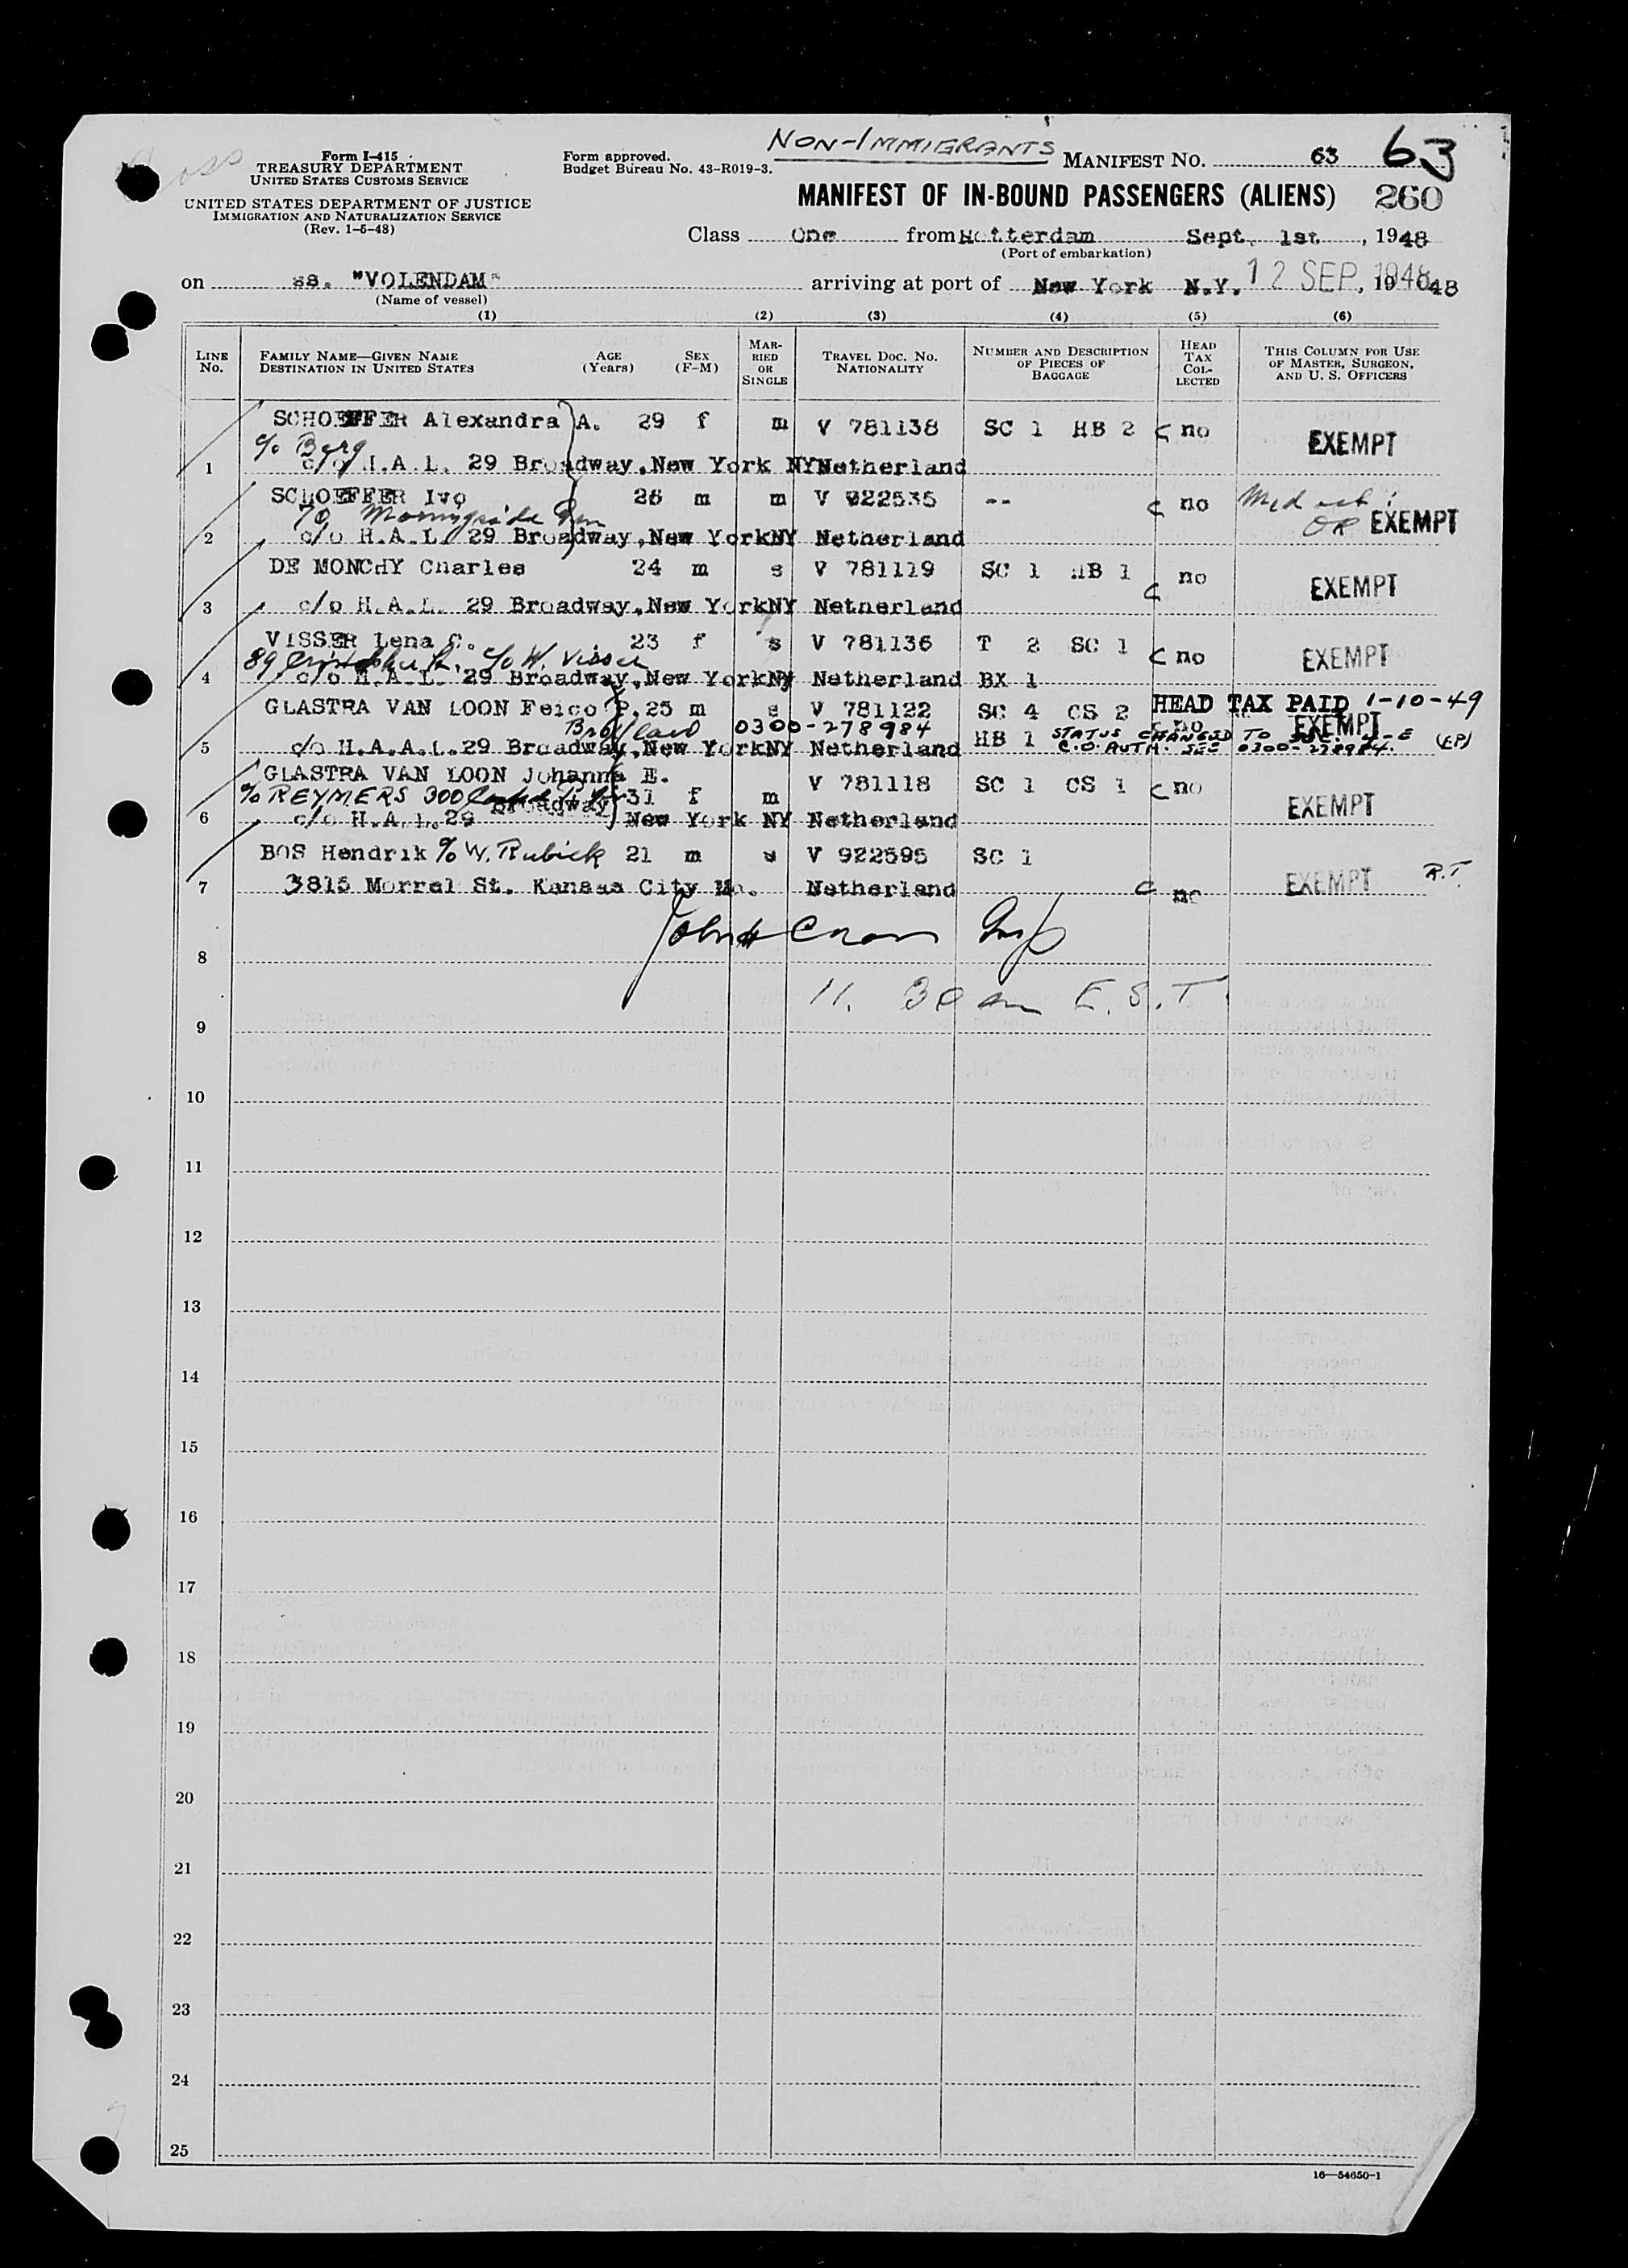 NON-IMMIGRANTS
Form I-415
TREASURY DEPARTMENT
UNITED STATES CUSTOMS SERVICE
UNITED STATES DEPARTMENT OF JUSTICE
IMMIGRATION AND NATURALIZATION SERVICE
(Rev. 1-5-48)
Form approved.
Budget Bureau No. 43-R019-3.
MANIFEST NO. 63 63
MANIFEST OF IN-BOUND PASSENGERS (ALIENS) 260
Class One from Rotterdam Sept. 1st, 1948
(Port of embarkation)
on ss. "VOLENDAM" arriving at port of New York N.Y. 12 SEP 1948, 1948
(Name of vessel)
(1) (2) (3) (4) (5) (6)
LINE No.
FAMILY NAME—GIVEN NAME
DESTINATION IN UNITED STATES
AGE (Years)
SEX (F-M)
MARRIED OR SINGLE
TRAVEL DOC. NO. NATIONALITY
NUMBER AND DESCRIPTION OF PIECES OF BAGGAGE
HEAD TAX COLLECTED
THIS COLUMN FOR USE OF MASTER, SURGEON, AND U. S. OFFICERS
SCHOEFFER Alexandra A. 29 f m V 781138 SC 1 HB 2 c no EXEMPT
c/o Berg
1 c/o H.A.L. 29 Broadway, New York NY Netherland
SCHOEFFER Ivo 26 m m V 922535 -- c no Med
70 Morningside OR EXEMPT
2 c/o H.A.L. 29 Broadway, New York NY Netherland
DE MONCHY Charles 24 m s V 781119 SC 1 HB 1 c no EXEMPT
3 c/o H.A.L. 29 Broadway, New York NY Netherland
VISSER Lena C. 23 f s V 781136 T 2 SC 1 c no EXEMPT
89 Christopher St. c/o W. Visser
4 c/o H.A.L. 29 Broadway, New York NY Netherland BX 1
HEAD TAX PAID 1-10-49
GLASTRA VAN LOON Feico P. 25 m s V 781122 SC 4 CS 2 c no EXEMPT
0300-278984
STATUS CHANGED TO SEC. 4-E
5 c/o H.A.A.L. 29 Broadway, New York NY Netherland HB 1 C.O. AUTH. SEE 0300-278984. (EP)
GLASTRA VAN LOON Johanna E. V 781118 SC 1 CS 1 c no EXEMPT
c/o REYMERS 300 31 f m
Broadway
6 c/o H.A.L. 29 New York NY Netherland
BOS Hendrik c/o W. Rubick 21 m s V 922595 SC 1 EXEMPT R.T.
7 3815 Morrel St. Kansas City Mo. Netherland c no
John Insp
8
11. 30 am E.S.T.
9
10
11
12
13
14
15
16
17
18
19
20
21
22
23
24
25
16—54650-1